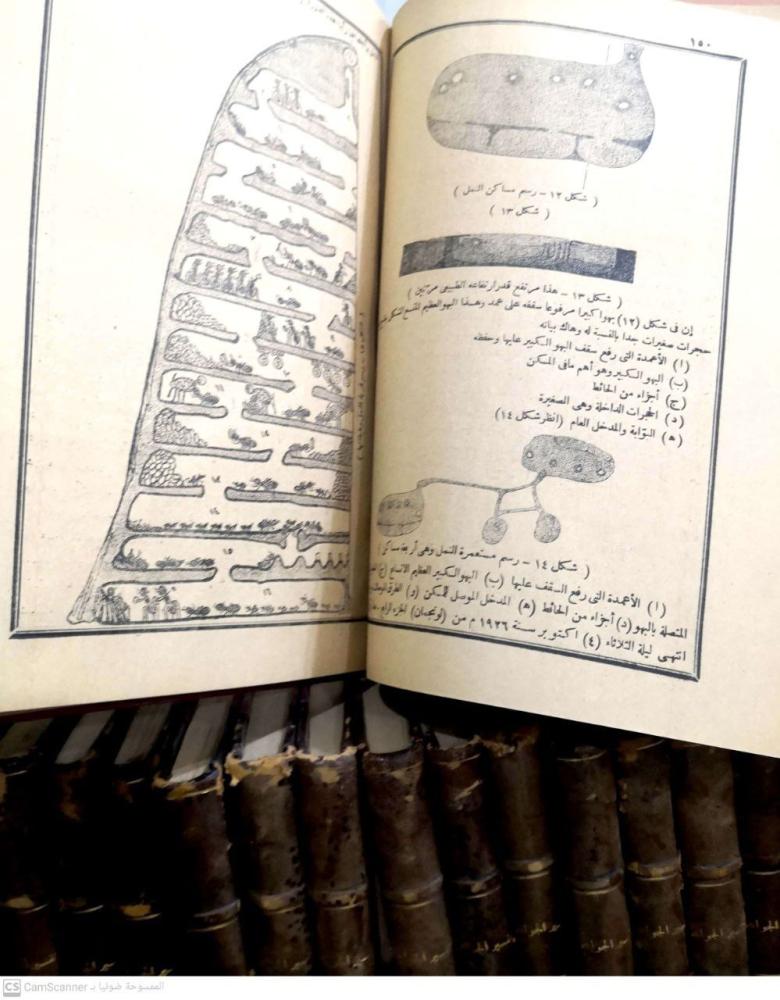 ١٥٠
( شكل ١٢ - رسم مساكن النمل )
( شكل ١٣ )
( شكل ١٣ - هذا مرتفع قدر ارتفاعه الطبيعى مرتين )
إن فى شكل (١٢) بهوا كبيرا مرفوعا سقفه على عمد وهذا البهو العظيم المقسم الشكل
حجرات صغيرات جدا بالنسبة له وهاك بيانه
(ا) الأعمدة التى رفع سقف البهو الكبير عليها وحفظه
(ب) البهو الكبير وهو أهم مافى المسكن
(ج) أجزاء من الحائط
(د) الحجرات الداخلة وهى الصغيرة
(ه) البوّابة والمدخل العام (انظر شكل ١٤)
( شكل ١٤ - رسم مستعمرة النمل وهى أربعة مساكن )
(ا) الأعمدة التى رفع السقف عليها (ب) البهو الكبير العظيم الاتساع (ج)
المتصلة بالبهو (د) أجزاء من الحائط (ه) المدخل الموصل للمسكن (و) الطرق
انتهى ليلة الثلاثاء (٤) اكتوبر سنة ١٩٢٦ م من (لونجمان) الجزء الرابع
CS CamScanner الممسوحة ضوئيا بـ